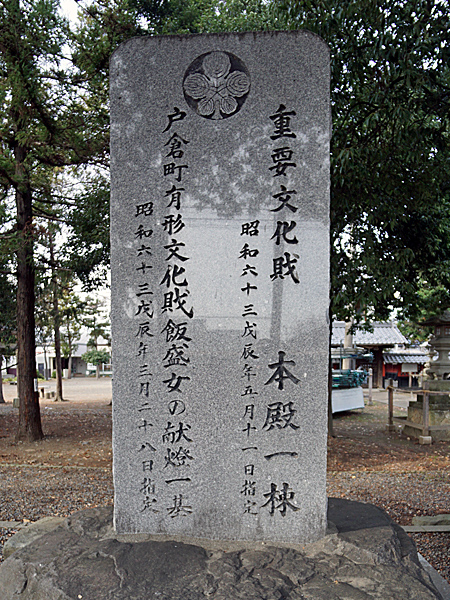 重要文化財 本殿一棟
昭和六十三戊辰年五月十一日指定
戸倉町有形文化財飯盛女の献燈一基
昭和六十三戊辰年三月二十八日指定